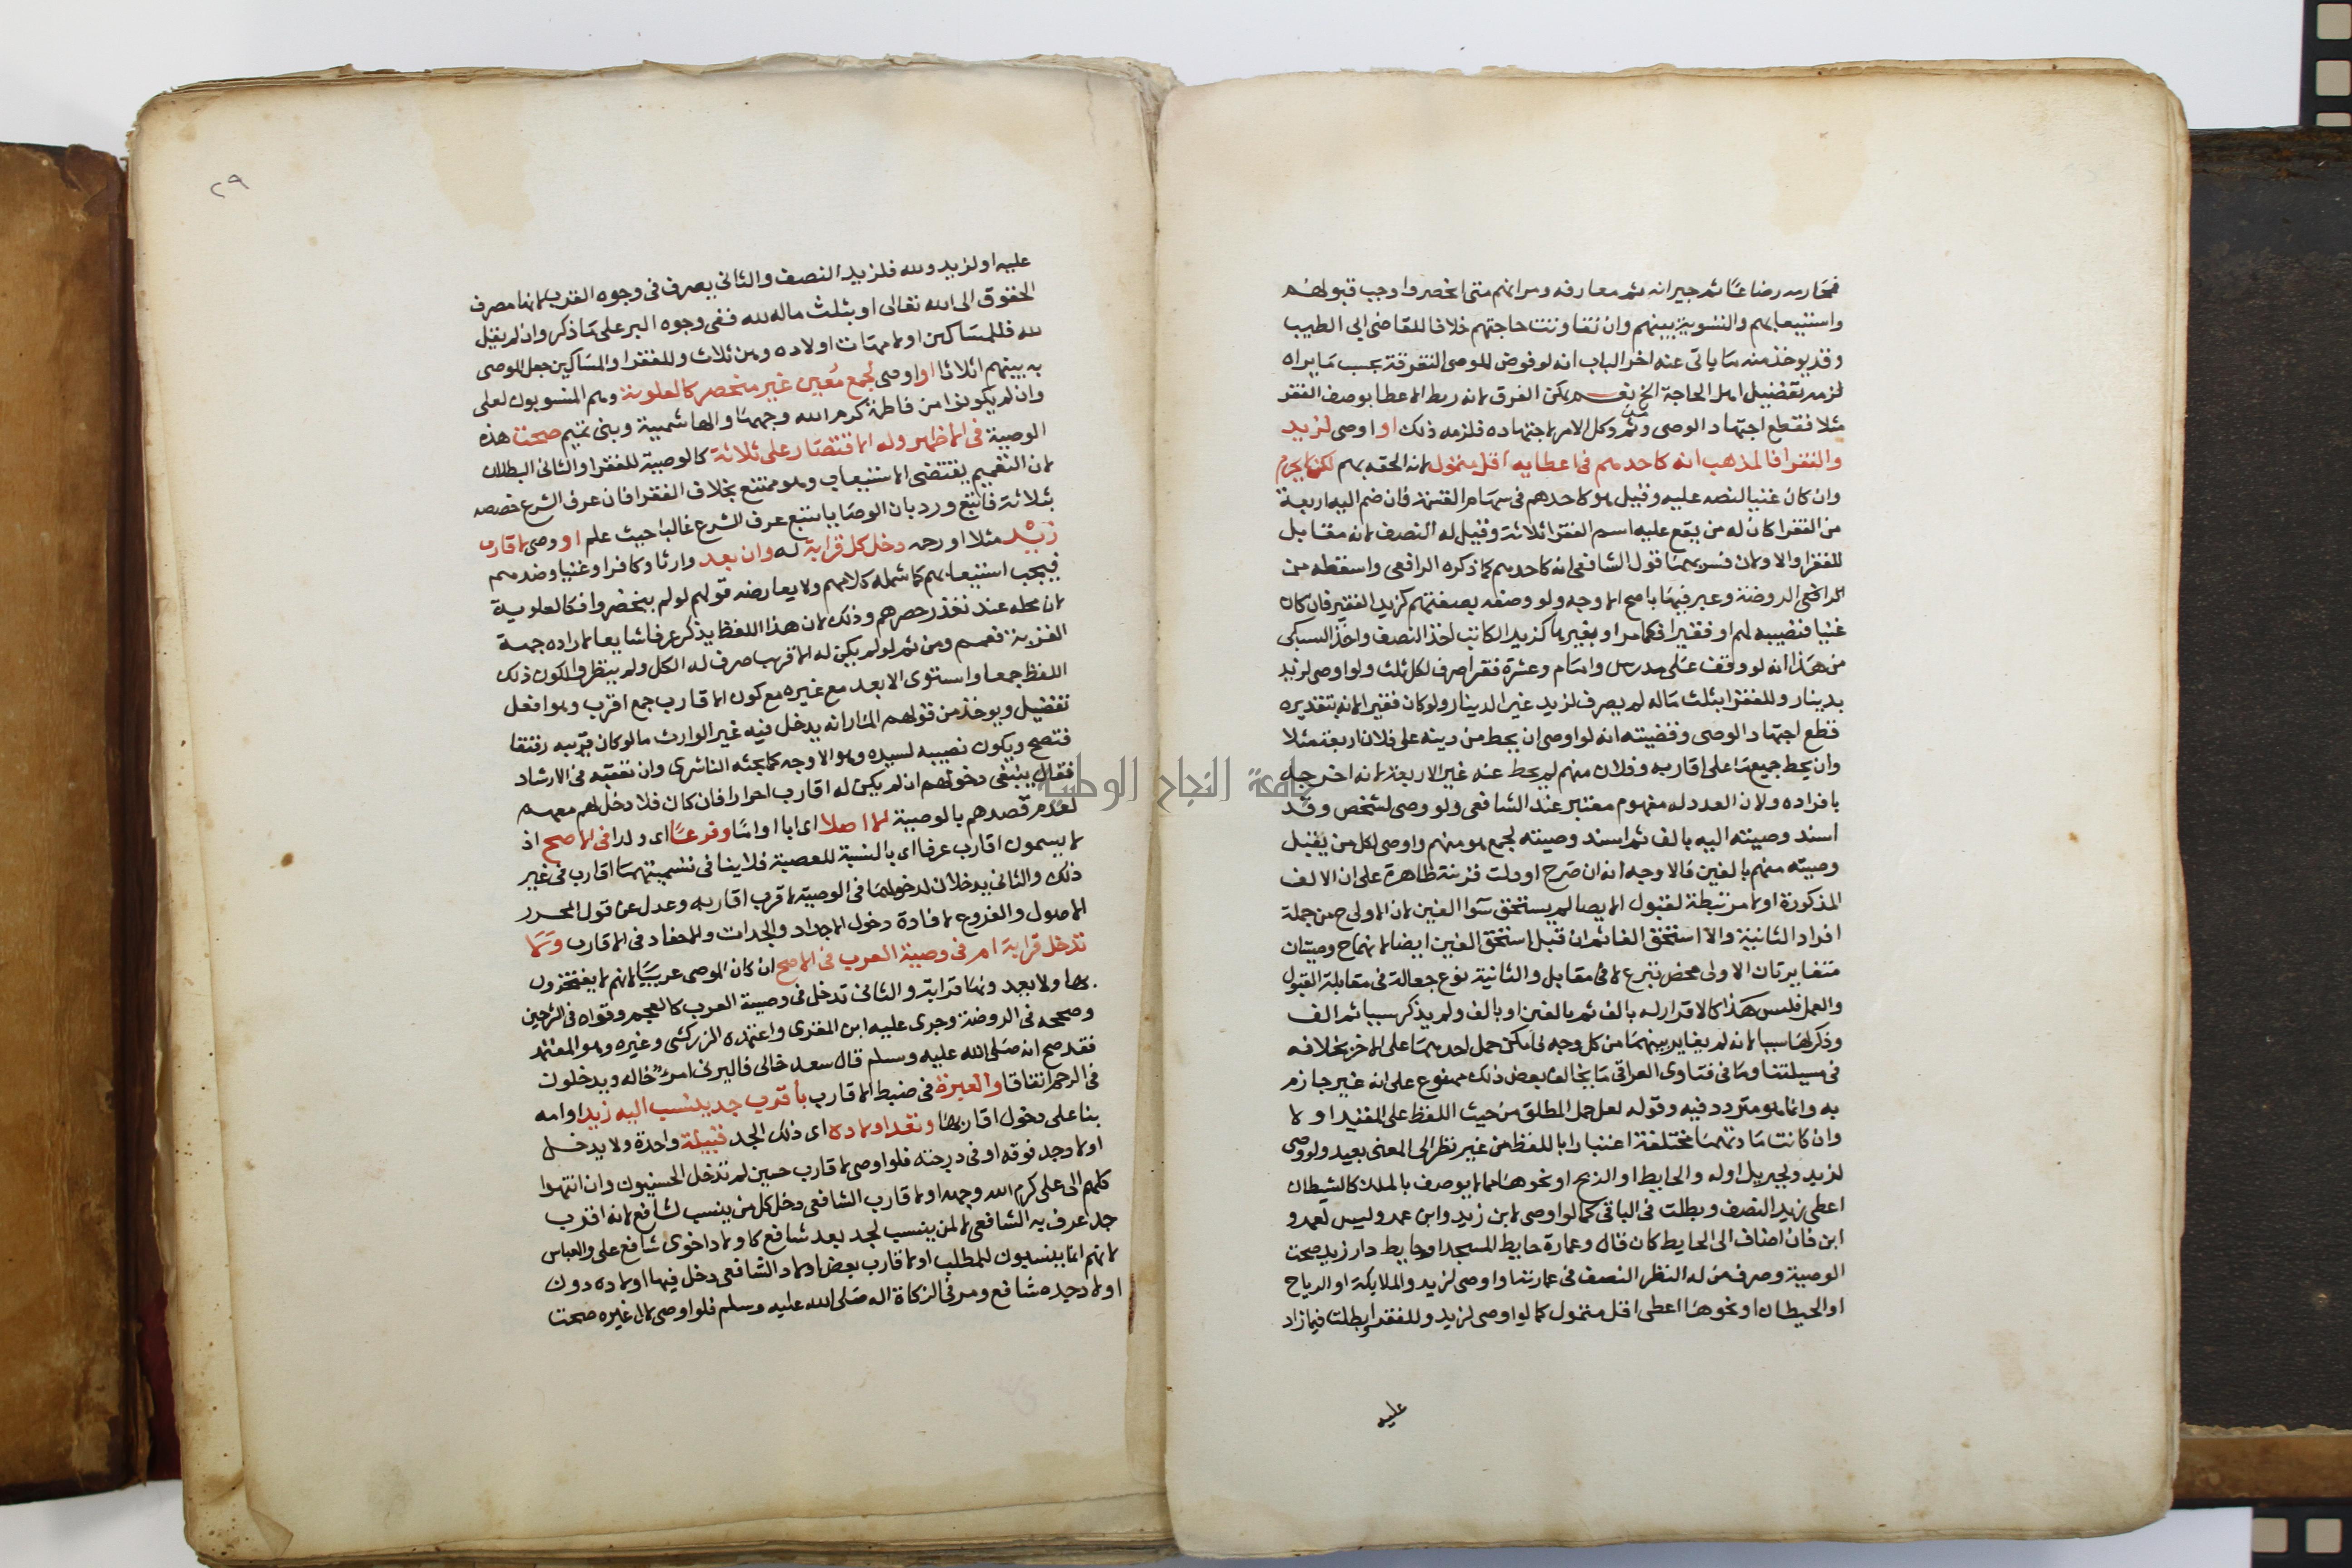 فمحارمه رضاعا ثم جيرانه ثم معارفه ومرانهم متى انحصروا وجب قبولهم
واستيعابهم والتسوية بينهم وان تفاوتت حاجتهم خلافا للقاضي ابي الطيب
وقد يوخذ منه ما ياتى عنه اخر الباب انه لو فوض للموصى التفرقة بحسب ما يراه
لزمه تفضيل اهل الحاجة الخ نعم يمكن الفرق لانه ربط الاعطا بوصف الفقر
مثلا فقطع اجتهاد الوصى وثم وكل الامر لاجتهاده فلزمه ذلك او اوصى لزيد
والفقرا فالمذهب انه كاحدهم فى اعطايه اقل متمول لانه الحقه بهم لكن لا يحرم
وان كان غنيا لنصه عليه وقيل هو كاحدهم فى سهام القسمة فان ضم اليه اربعة
من الفقرا كان له من يقع عليه اسم الفقرا ثلاثة وقيل له النصف لانه مقابل
للفقرا والاولان فسر بهما قول الشافعى انه كاحدهم كما ذكره الرافعى واسقطه من
الروضة وعبر فيها باصح الاوجه ولو وصفه بصفتهم كزيد الفقير فان كان
غنيا فنصيبه لهم او فقيرا فكما مر او بغيرها كزيد الكاتب اخذ النصف واخذ السبكى
من هذا انه لو وقف على مدرس وامام وعشرة فقرا صرف لكل ثلث ولو اوصى لزيد
بدينار وللفقرا بثلث ماله لم يصرف لزيد غير الدينار ولو كان فقيرا لانه بتقديره
قطع اجتهاد الوصى وقضيته انه لو اوصى ان يحط من دينه على فلان اربعة مثلا
وان يحط جميع ما على اقاربه وفلان منهم لم يحط عنه غير الاربعة لانه اخرجه
بافراده ولان العدد له مفهوم معتبر عند الشافعى ولو وصى لشخص وقد
اسند وصيته اليه بالف ثم اسند وصيته لجمع هو منهم واوصى لكل من يقبل
وصيته منهم بالفين فالاوجه انه ان صرح او دلت قرينة ظاهرة على ان الالف
المذكورة اولا مرتبطة لقبول الايصا لم يستحق سوا الفين لان الاولى ح من جملة
افراد الثانية والا استحق الفا ثم ان قبل استحق الفين ايضا لانهما ح وصيتان
متغايرتان الاولى محض تبرع لا فى مقابل والثانية نوع جعالة فى مقابلة القبول
والعمل فليس هذا كالاقرار له بالف ثم بالفين او بالف ولم يذكر سببا ثم الف
وذكر لها سببا لانه لم يغاير بينهما من كل وجه فامكن حمل احدهما على الاخر بخلافه
فى مسيلتنا وما فى فتاوى العراقى مما يخالف بعض ذلك ممنوع على انه غير جازم
به وانما هو متردد فيه وقوله لعل حمل المطلق من حيث اللفظ على المقيد اولا
وان كانت مادتهما مختلفة اعتبارا باللفظ من غير نظر الى المعنى بعيد ولو وصى
لزيد ولجبريل او له والحايط او الريح او نحوها مما لا يوصف بالملك كالشيطان
اعطى زيد النصف وبطلت فى الباقى كما لو اوصى لابن زيد وابن عمرو وليس لعمرو
ابن فان اضاف الى الحايط كان قال وعمارة حايط المسجد او حايط دار زيد صحت
الوصية وصرف من له النظر النصف فى عمارتها واوصى لزيد والملايكة او الرياح
او الحيطان او نحوها اعطى اقل متمول كما لو اوصى لزيد وللفقرا وبطلت فيما زاد
عليه
٢٩
عليه او لزيد ولله فلزيد النصف والثانى يصرف فى وجوه القرب لانها مصرف
الحقوق الى الله تعالى او بثلث ماله لله ففى وجوه البر على ما ذكر وان لم يقل
لله فللمساكين او لامهات اولاده وهن ثلاث وللفقرا والمساكين جعل الموصى
به بينهم اثلاثا او اوصى لجمع معين غير منحصر كالعلوية وهم المنسوبون لعلى
وان لم يكونوا من فاطمة كرم الله وجههما والهاشمية وبنى تميم صحت هذه
الوصية فى الاظهر وله الاقتصار على ثلاثة كالوصية للفقرا والثانى البطلان
لان التعميم يقتضى الاستيعاب وهو ممتنع بخلاف الفقرا فان عرف الشرع خصصه
بثلاثة فاتبع ورد بان الوصايا يتبع عرف الشرع غالبا حيث علم او وصى لاقارب
زيد مثلا او رحمه دخل كل قرابة له وان بعد وارثا وكافرا وغنيا وضدهم
فيجب استيعابهم كما شمله كلامهم ولا يعارضه قولهم لو لم ينحصروا فكالعلوية
لان محله عند تعذر حصرهم وذلك لان هذا اللفظ يذكر عرفا شايعا لارادة جهة
القرابة فعمم ومن ثم لو لم يكن له الا قريب صرف له الكل ولم ينظروا لكون ذلك
اللفظ جمعا واستوى الابعد مع غيره مع كون الاقارب جمع اقرب وهو افعل
تفضيل ويوخذ من قولهم المار انه يدخل فيه غير الوارث ما لو كان قريبه رقيقا
فتصح ويكون نصيبه لسيده وهو الاوجه كما بحثه الناشرى وان تعقبه فى الارشاد
فقال ينبغى دخولهم ان لم يكن له اقارب احرارا فان كان فلا دخل لهم معهم
لعدم قصدهم بالوصية الا اصلا اى ابا او اما وفرعا اى ولدا فى الاصح اذ
لا يسمون اقارب عرفا اى بالنسبة للوصية فلا ينافى تسميتهما اقارب فى غير
ذلك والثانى يدخلان لدخولهما فى الوصية لاقرب اقاربه وعدل عن قول المحرر
الاصول والفروع لافادة دخول الاجداد والجدات والاحفاد فى الاقارب ولا
تدخل قرابة ام فى وصية العرب فى الاصح ان كان الموصى عربيا لانهم لا يفتخرون
بها ولا يعدونها قرابة والثانى تدخل فى وصية العرب كالعجم وقواه فى الشرحين
وصححه فى الروضة وجرى عليه ابن المقرى واعتمده الزركشى وغيره وهو المعتمد
فقد صح انه صلى الله عليه وسلم قال سعد خالى فاليرنى امرؤ خاله ويدخلون
فى الرحم اتفاقا والعبرة فى ضبط الاقارب باقرب جد ينسب اليه زيد او امه
بنا على دخول اقاربها وتعد اولاده اى ذلك الجد قبيلة واحدة ولا يدخل
اولاد جد فوقه او فى درجته فلو اوصى لاقارب حسين لم تدخل الحسنيون وان انتهوا
كلهم الى على كرم الله وجهه او لاقارب الشافعى دخل كل من ينسب لشافع لانه اقرب
جد عرف به الشافعى لا لمن ينسب لجد بعد شافع كاولاد اخوى شافع على والعباس
لانهم انما ينسبون للمطلب او لاقارب بعض اولاد الشافعى دخل فيها اولاده دون
اولاد جده شافع ومر فى الزكاة اله صلى الله عليه وسلم فلو اوصى لال غيره صحت
جامعة النجاح الوطنية